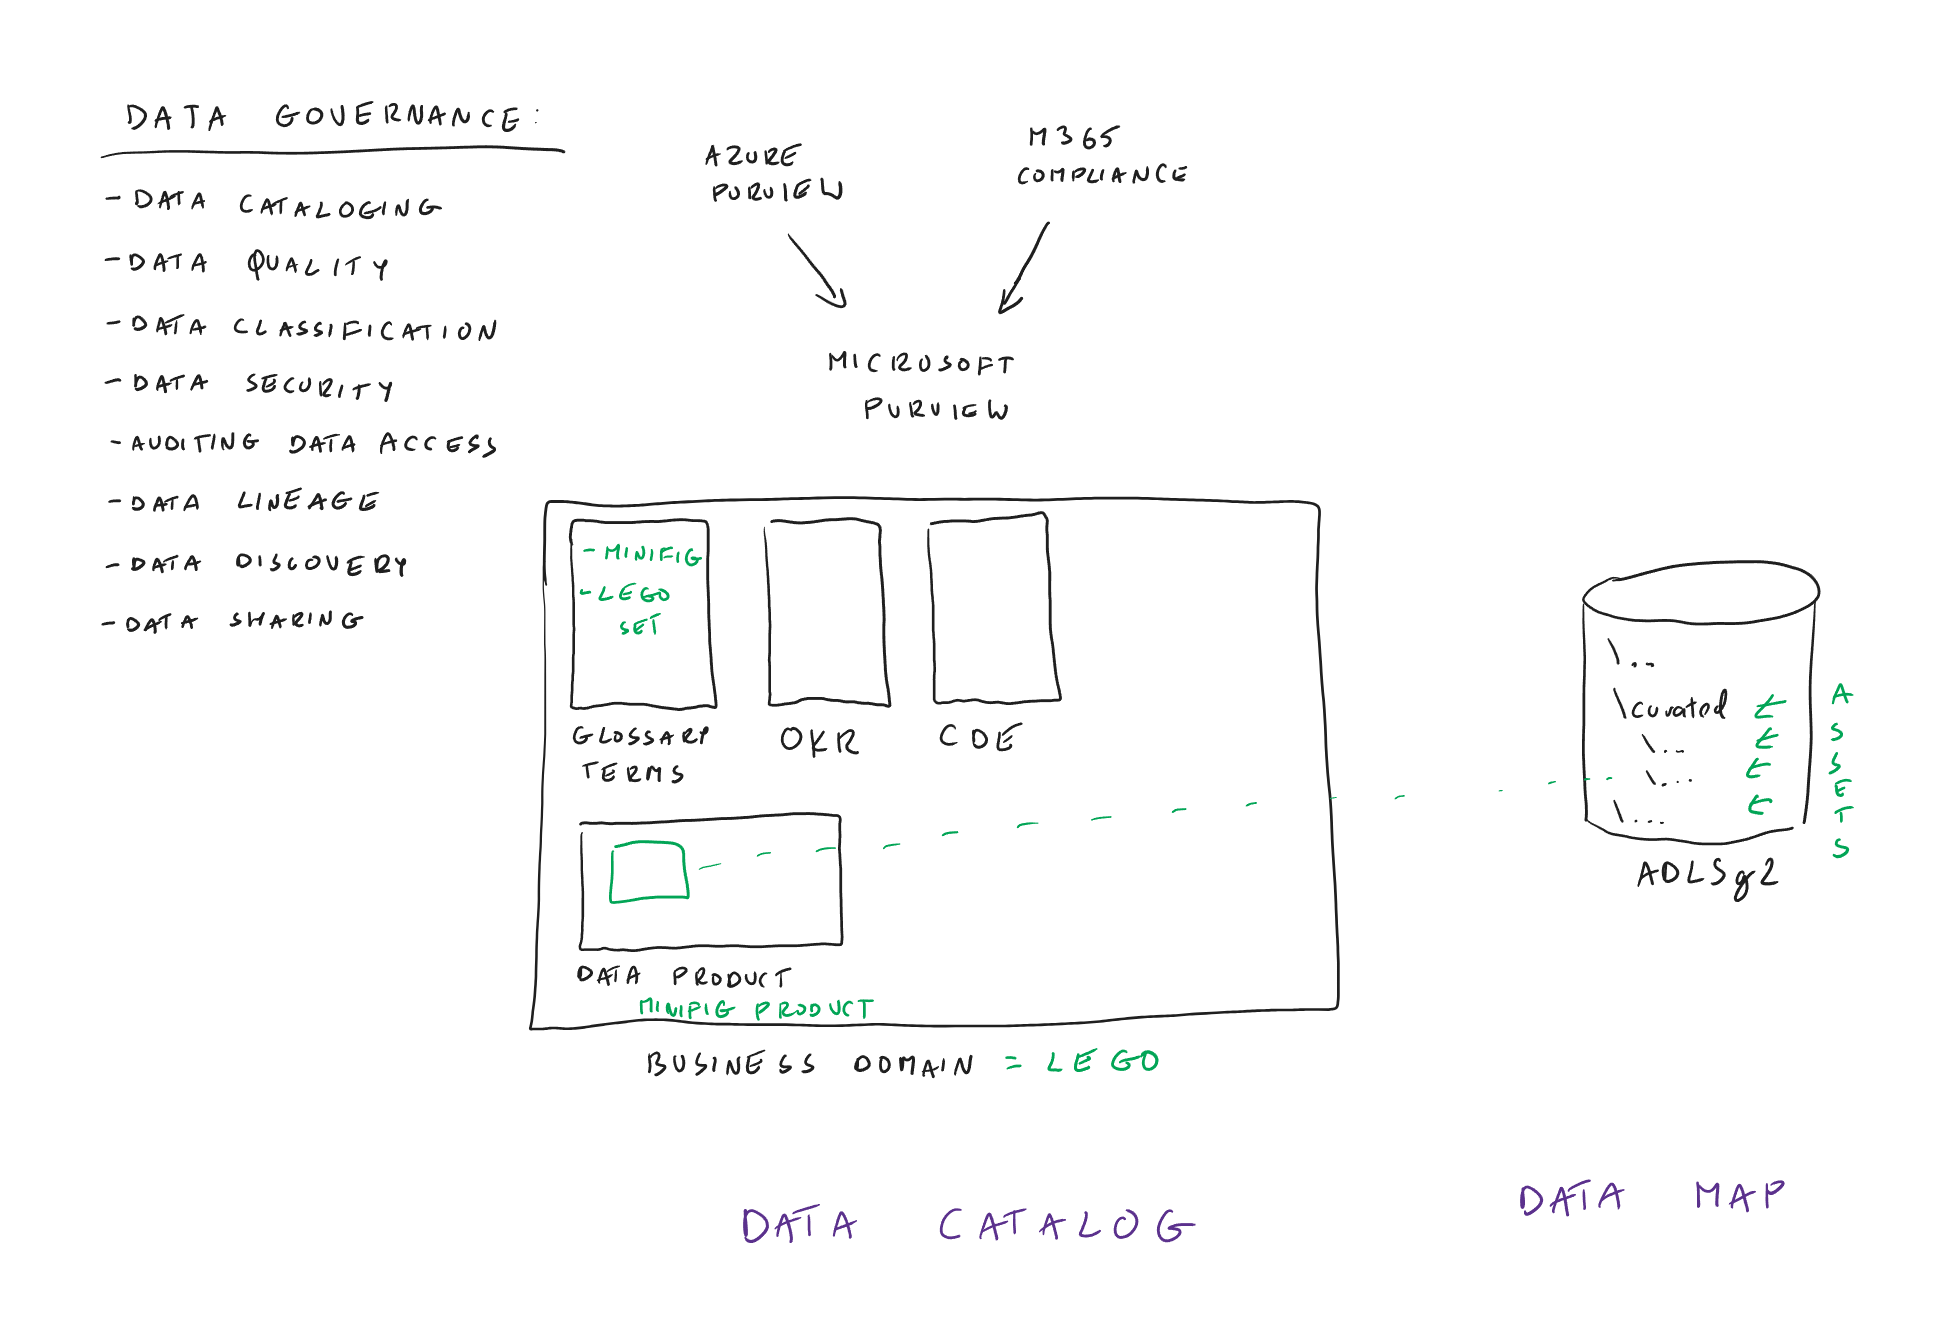 DATA GOVERNANCE:
- DATA CATALOGING
- DATA QUALITY
- DATA CLASSIFICATION
- DATA SECURITY
- AUDITING DATA ACCESS
- DATA LINEAGE
- DATA DISCOVERY
- DATA SHARING
AZURE
PURVIEW
M365
COMPLIANCE
MICROSOFT
PURVIEW
- MINIFIG
- LEGO
SET
GLOSSARY
TERMS
OKR
CDE
DATA PRODUCT
MINIFIG PRODUCT
BUSINESS DOMAIN = LEGO
\..
\curated
\..
\...
\...
ASSETS
ADLSg2
DATA CATALOG
DATA MAP